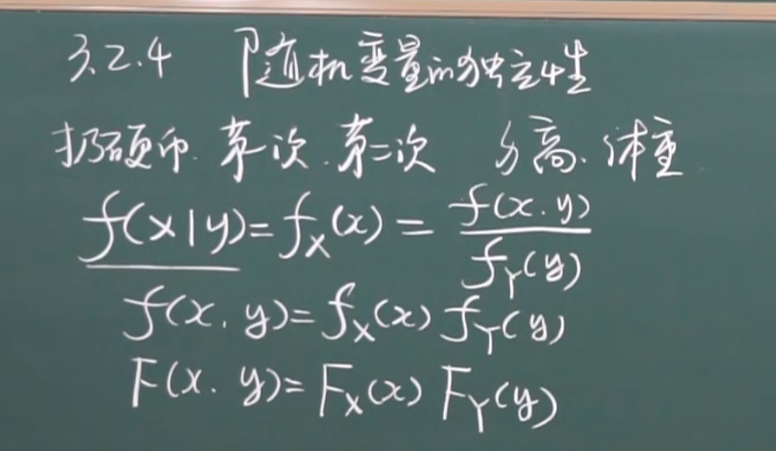 3.2.4 随机变量的独立性
扔硬币. 第一次. 第二次 身高. 体重
f(x|y)=f_X(x)=\frac{f(x.y)}{f_Y(y)}
f(x.y)=f_X(x)f_Y(y)
F(x.y)=F_X(x)F_Y(y)